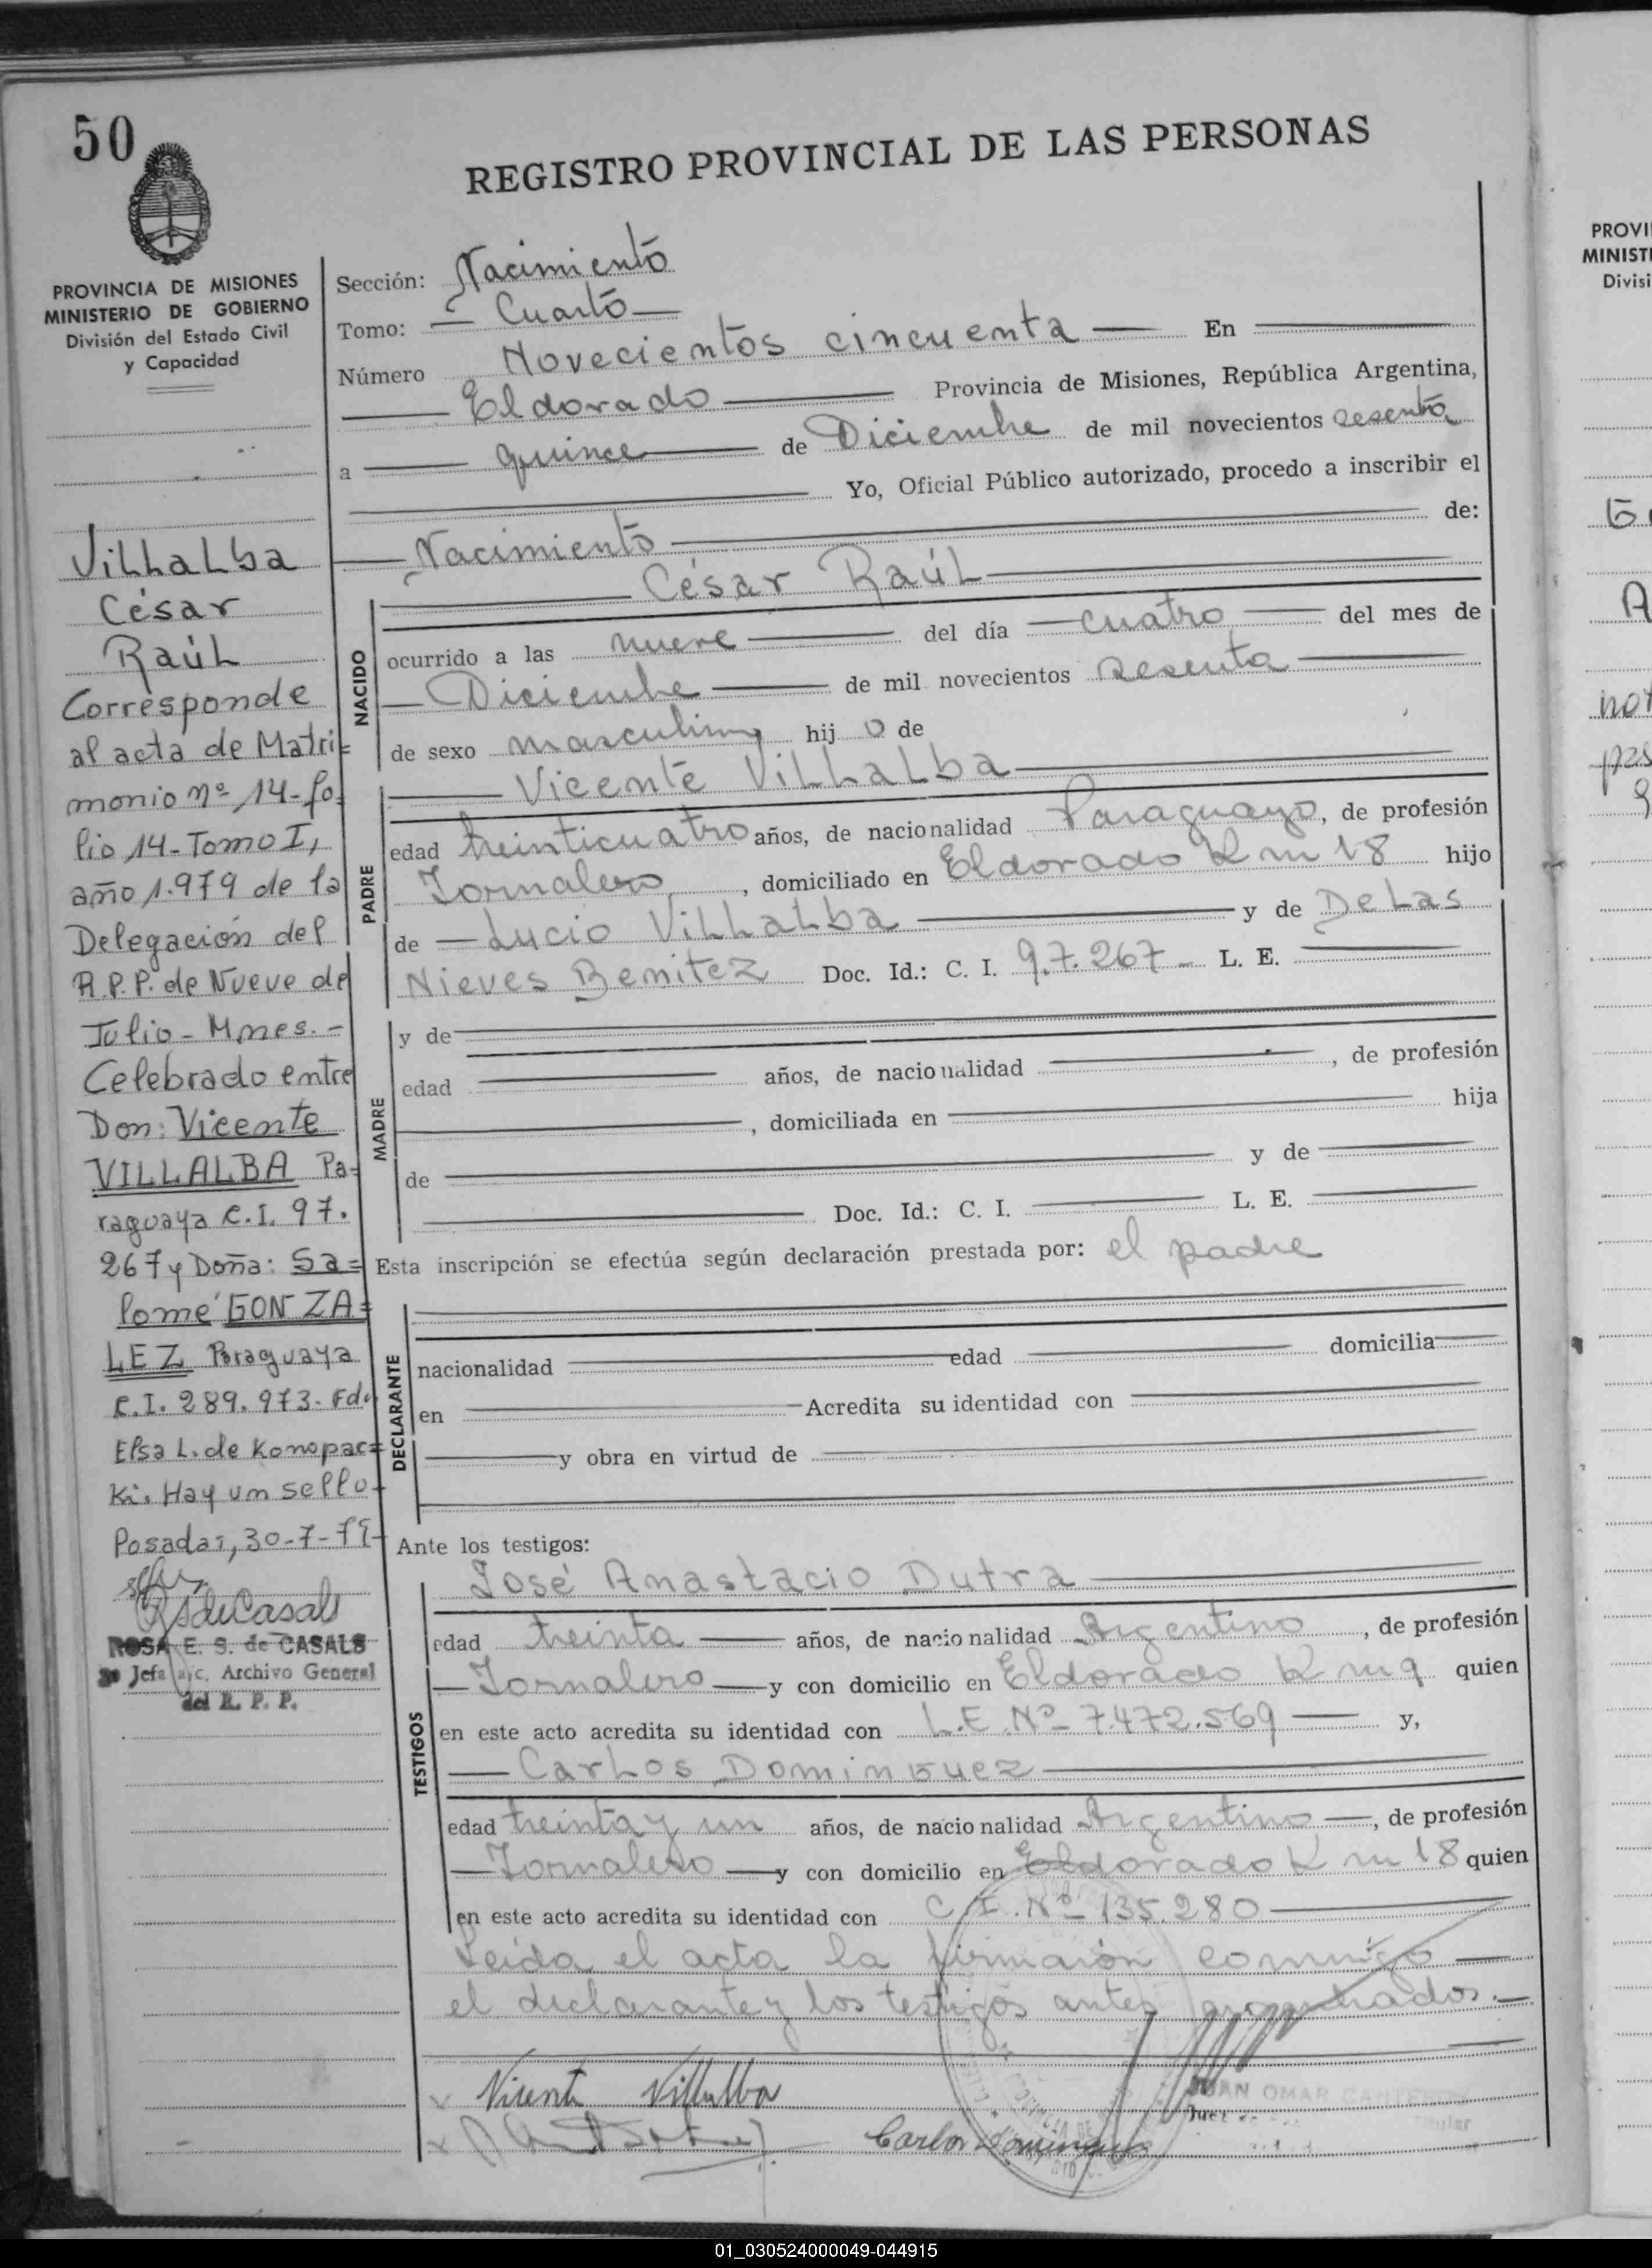 50
REGISTRO PROVINCIAL DE LAS PERSONAS
PROVINCIA DE MISIONES
MINISTERIO DE GOBIERNO
División del Estado Civil
y Capacidad
Villalba
César
Raúl
Corresponde
al acta de Matri=
monio nº 14-fo=
lio 14-Tomo I,
año 1.979 de la
Delegación del
R.P.P. de Nueve de
Julio-Mnes.-
Celebrado entre
Don: Vicente
VILLALBA Pa=
raguaya C.I. 97.
267 y Doña: Sa=
lomé GONZA=
LEZ Paraguaya
C.I. 289.973. Fdo
Elsa L. de Konopac=
ki. Hay un sello.
Posadas, 30-7-79-
RSdeCasals
ROSA E. S. de CASALS
Jefa a/c. Archivo General
del R. P. P.
Sección: Nacimiento
Tomo: Cuarto
Número Novecientos cincuenta En
Eldorado Provincia de Misiones, República Argentina,
a quince de Diciembre de mil novecientos sesenta
Yo, Oficial Público autorizado, procedo a inscribir el
Nacimiento de:
César Raúl
NACIDO
ocurrido a las nueve del día cuatro del mes de
Diciembre de mil novecientos sesenta
de sexo masculino hij o de
Vicente Villalba
PADRE
edad treinticuatro años, de nacionalidad Paraguayo, de profesión
Jornalero, domiciliado en Eldorado Km 18 hijo
de Lucio Villalba y de De Las
Nieves Benitez Doc. Id.: C. I. 97.267- L. E.
MADRE
y de
edad años, de nacionalidad , de profesión
, domiciliada en hija
de y de
Doc. Id.: C. I. L. E.
Esta inscripción se efectúa según declaración prestada por: el padre
DECLARANTE
nacionalidad edad domicilia
en Acredita su identidad con
y obra en virtud de
Ante los testigos:
José Anastacio Dutra
TESTIGOS
edad treinta años, de nacionalidad Argentino, de profesión
Jornalero y con domicilio en Eldorado Km 9 quien
en este acto acredita su identidad con L.E. Nº 7.472.569 y,
Carlos Dominguez
edad treinta y un años, de nacionalidad Argentino, de profesión
Jornalero y con domicilio en Eldorado Km 18 quien
en este acto acredita su identidad con C.I. Nº 135.280
Leida el acta la firmaron conmigo
el declarante y los testigos antes
Vicente Villalba
JUAN OMAR
Titular
Carlos Dominguez
PROVI
MINISTE
Divisi
01_030524000049-044915